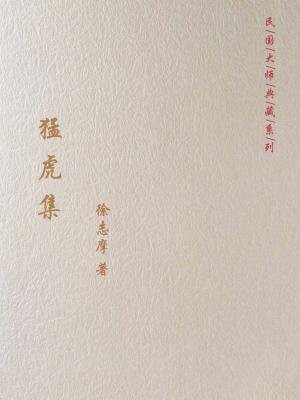 民|国|大|师|典|藏|系|列
猛虎集
徐志摩 著